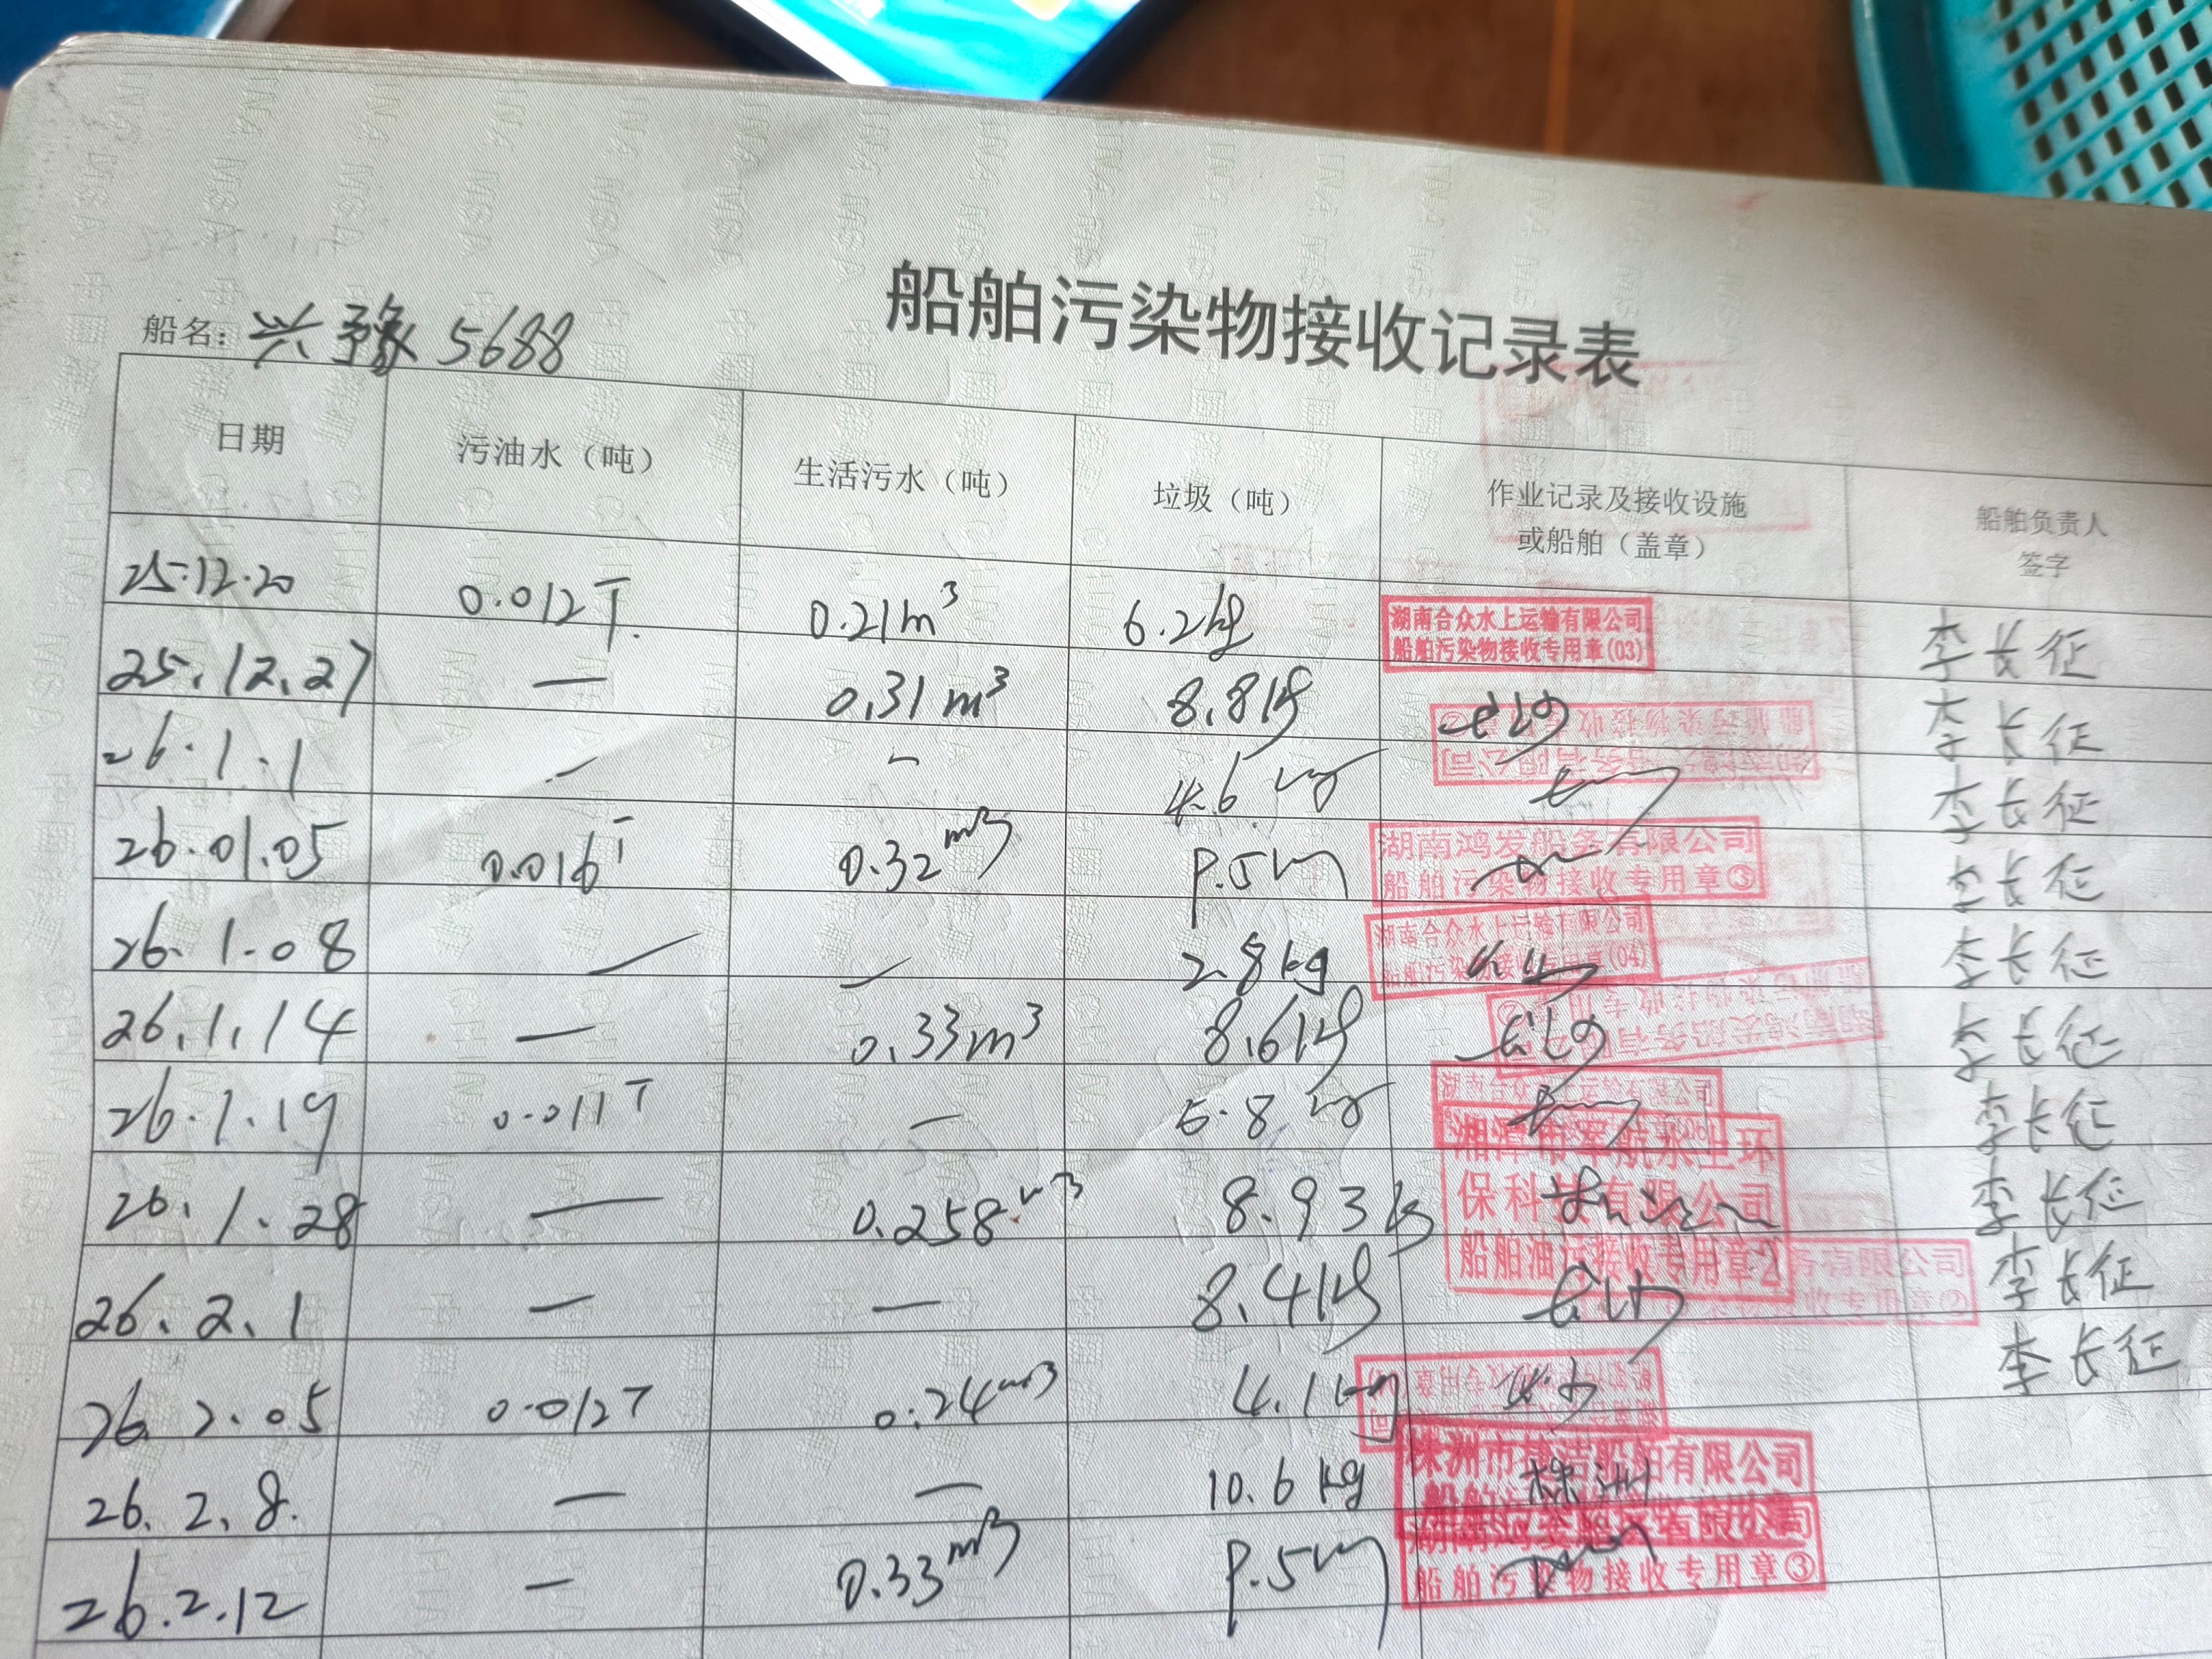 船舶污染物接收记录表
船名：兴豫5688
日期 污油水（吨） 生活污水（吨） 垃圾（吨） 作业记录及接收设施或船舶（盖章） 船舶负责人签字
25.12.20 0.012T. 0.21m³ 6.2kg 湖南合众水上运输有限公司 船舶污染物接收专用章(03) 李长征
25.12.27 — 0.31m³ 8.8kg 李长征
26.1.1 — — 4.6kg 李长征
26.01.05 0.016T 0.32m³ 9.5kg 湖南鸿发船务有限公司 船舶污染物接收专用章③ 李长征
26.1.08 — — 2.8kg 湖南合众水上运输有限公司 船舶污染物接收专用章(04) 李长征
26.1.14 — 0.33m³ 8.6kg 李长征
26.1.19 0.011T — 5.8kg 湖南合众水上运输有限公司 李长征
26.1.28 — 0.258m³ 8.93kg 湘潭市军航水上环保科技有限公司 船舶油污接收专用章2 李长征
26.2.1 — — 8.4kg 李长征
26.2.05 0.012T 0.24m³ 4.1kg 李长征
26.2.8. — — 10.6kg 株洲市捷洁船舶有限公司 株洲
26.2.12 — 0.33m³ 9.5kg 船舶污染物接收专用章③